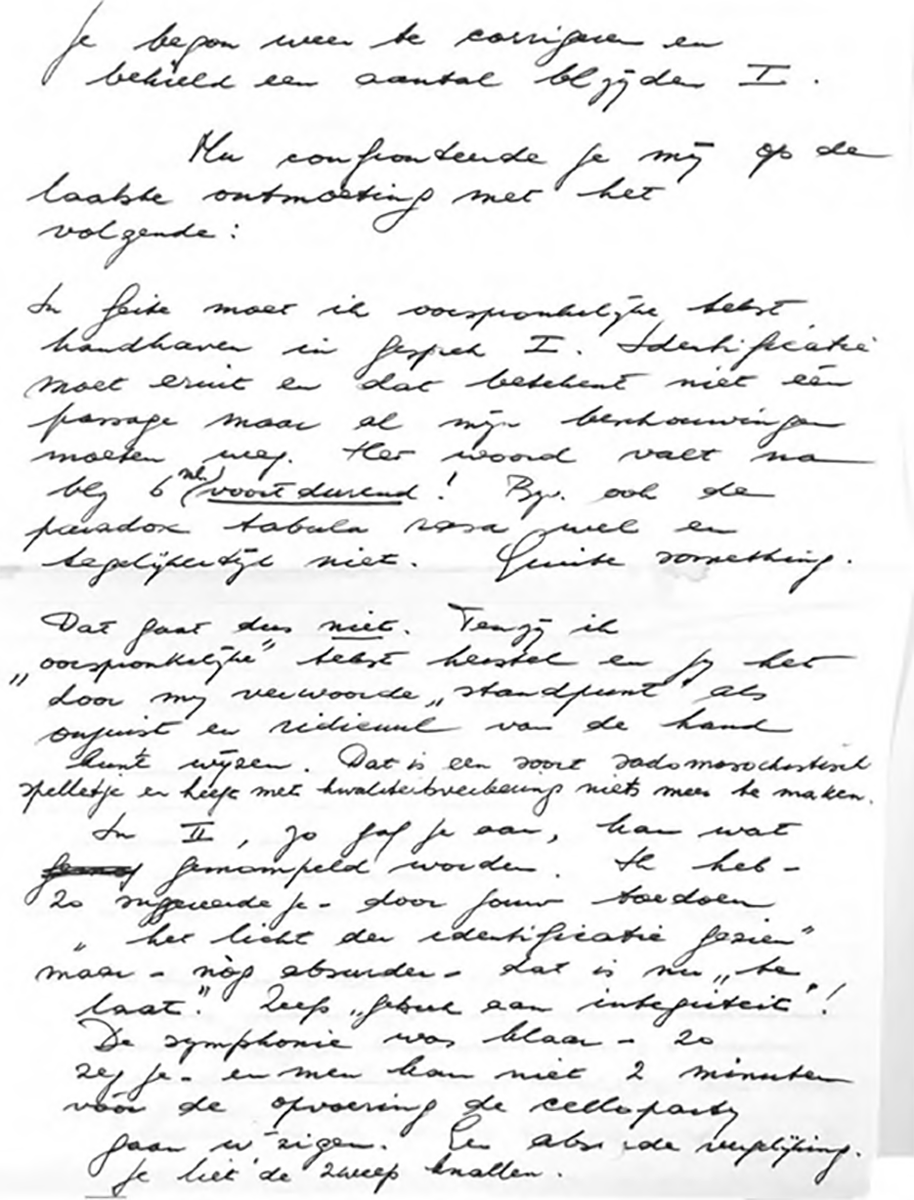 Je begon weer te corrigeren en
behield een aantal blzijden I.
Nu confronteerde je mij op de
laatste ontmoeting met het
volgende:
In feite moet ik oorspronkelijke tekst
handhaven in gesprek I. Identificatie
moet eruit en dat betekent niet één
passage maar al mijn beschouwingen
moeten weg. Het woord valt na
blz 6 (nl.) voortdurend! Bijv. ook de
paradox tabula rasa wel en
tegelijkertijd niet. Quite something.
Dat gaat dus niet. Tenzij ik
„oorspronkelijke" tekst herstel en jij het
door mij verwoorde „standpunt" als
onjuist en ridicuul van de hand
kunt wijzen. Dat is een soort sadomasochistisch
spelletje en heeft met kwaliteitsverbetering niets meer te maken.
In II, zo gaf je aan, kan wat
gemompeld worden. Ik heb -
zo suggereerde je - door jouw toedoen
„het licht der identificatie gezien"
maar - nòg absurder - dat is nu „te
laat". Zelfs „gebrek aan integriteit"!
De symphonie was klaar - zo
zeg je - en men kan niet 2 minuten
vóór de opvoering de celloparty
gaan wijzigen. Een absurde vergelijking.
Je liet de zweep knallen.